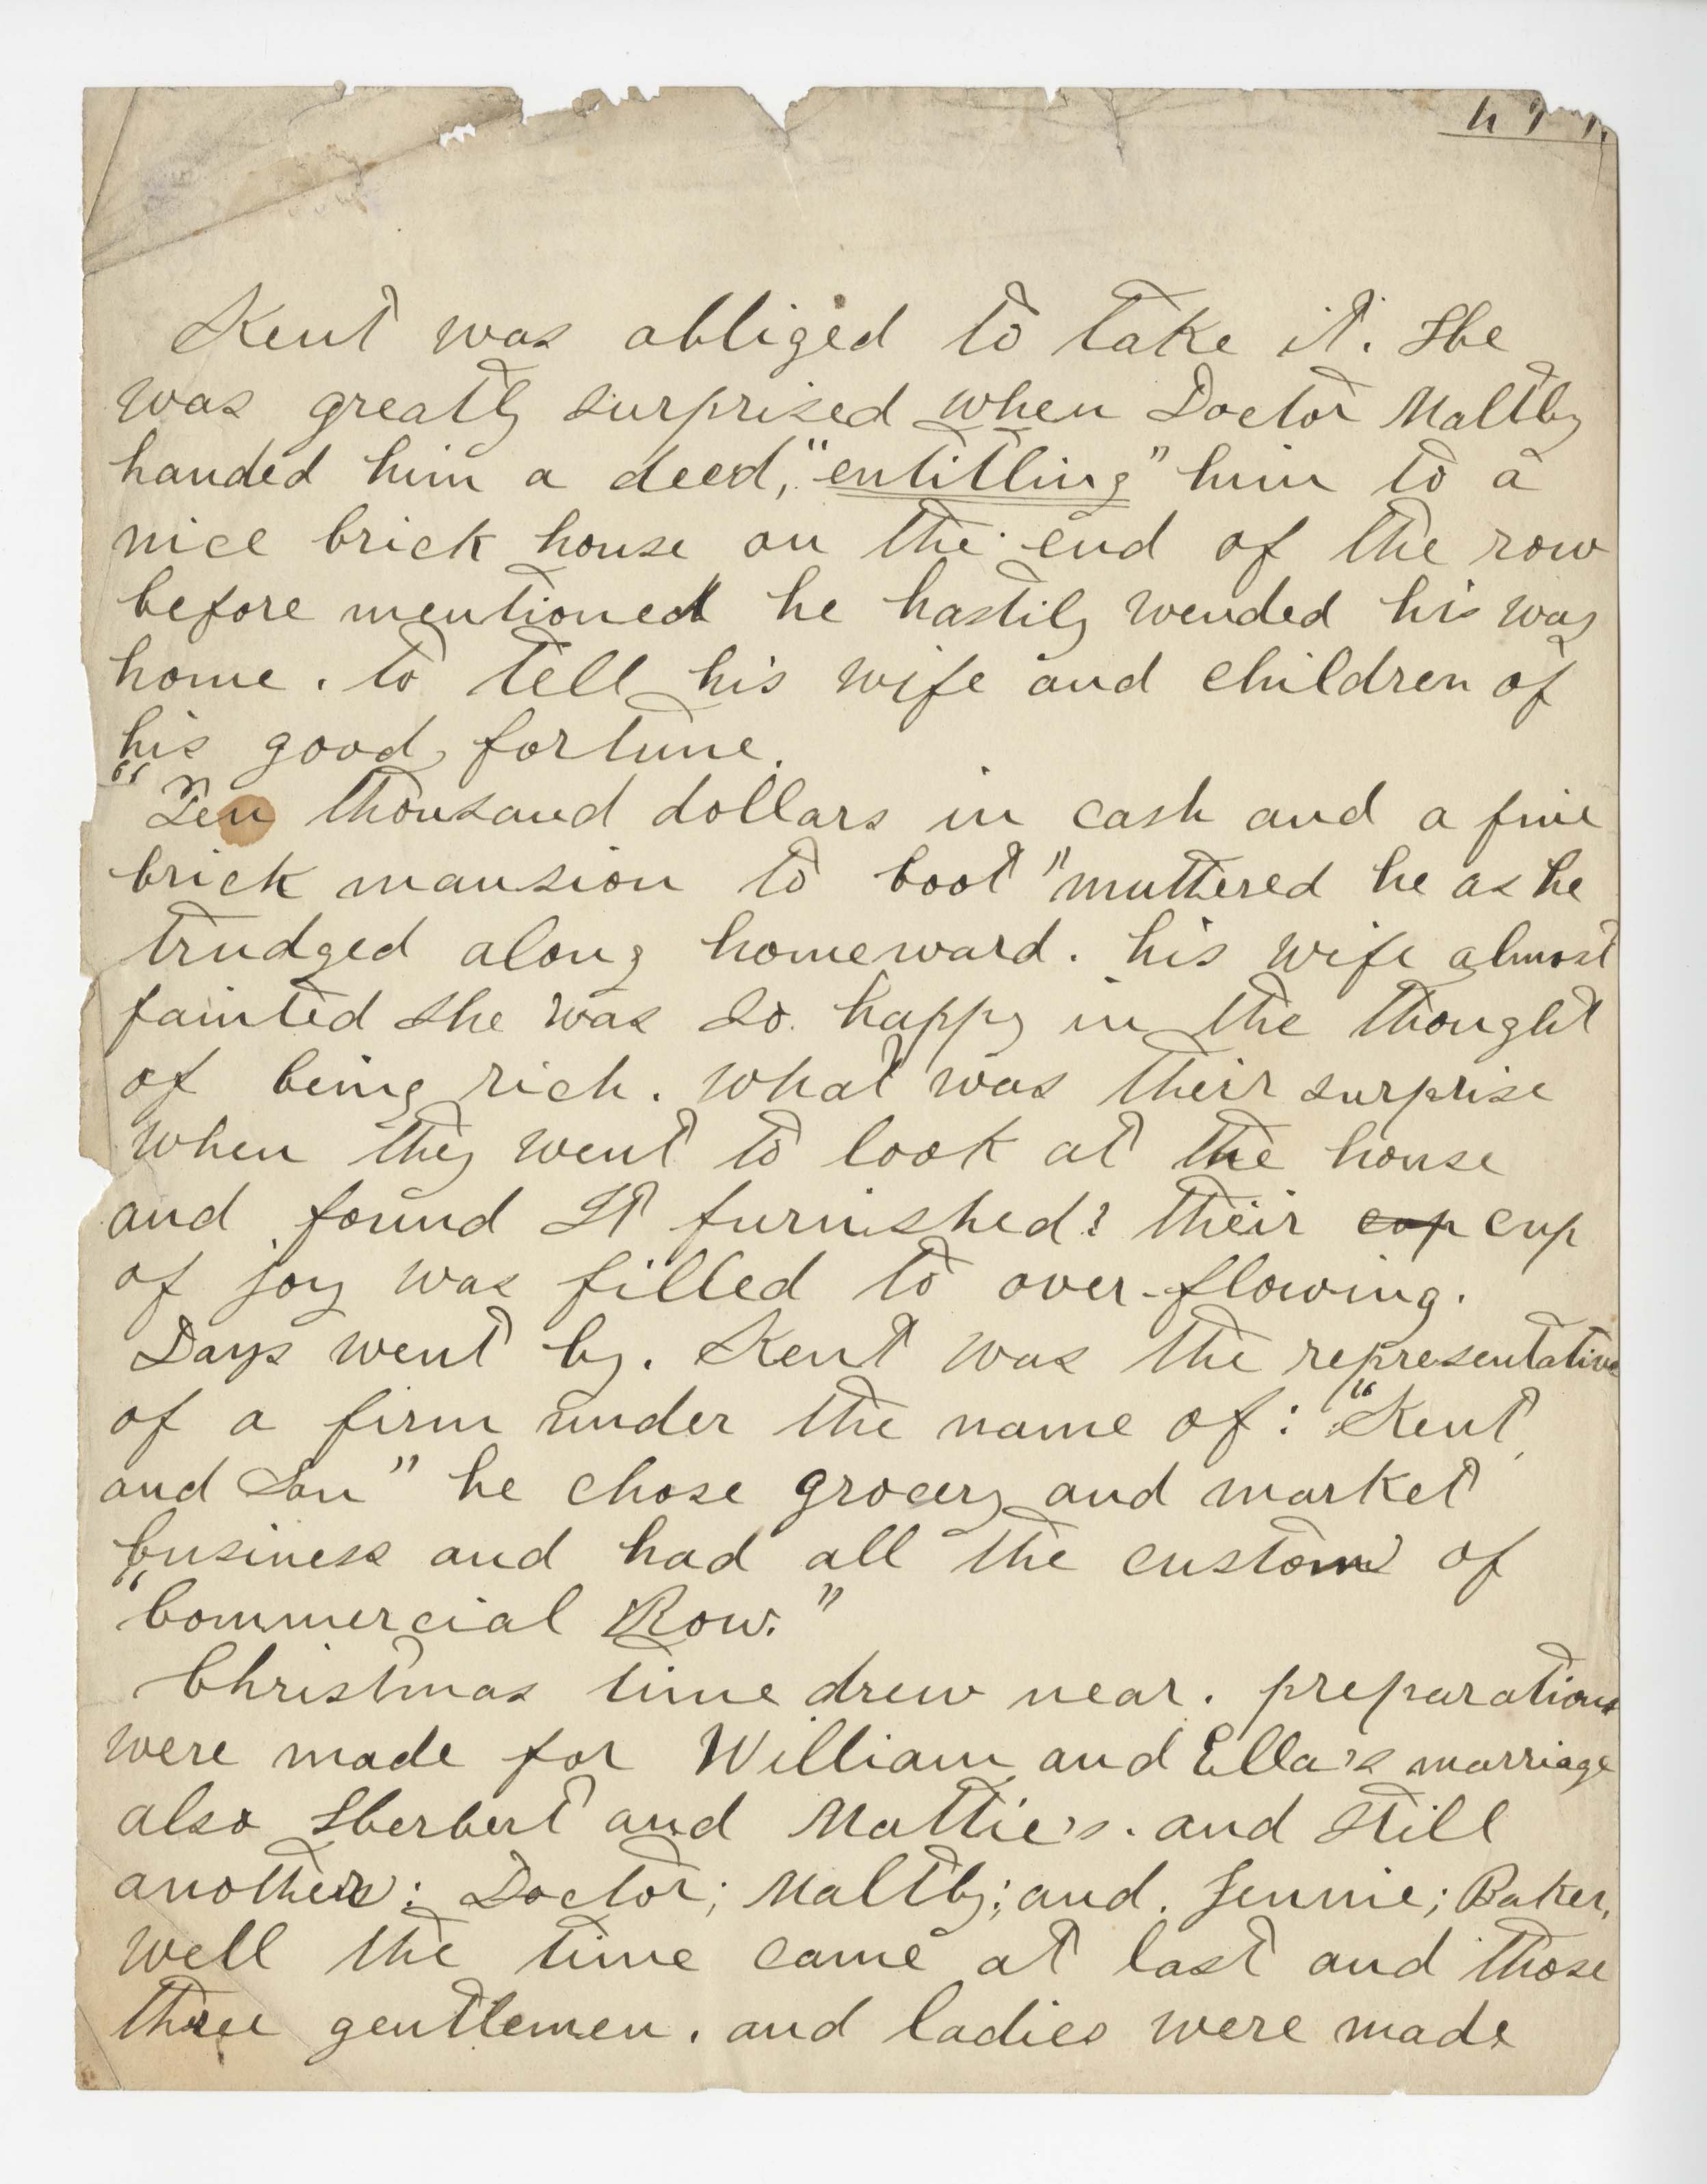 Kent was obliged to take it. He
was greatly surprised when Doctor Maltby
handed him a deed, "entitling" him to a
nice brick house on the end of the row
before mentioned he hastily wended his way
home. to tell his wife and children of
his good fortune.
"Ten thousand dollars in cash and a fine
brick mansion to boot" muttered he as he
trudged along homeward. his wife almost
fainted she was so happy in the thought
of being rich. what was their surprise
when they went to look at the house
and found It furnished? their cup cup
of joy was filled to over-flowing.
Days went by. Kent was the representative
of a firm under the name of: "Kent
and Son" he chose grocery and market
business and had all the custom of
"Commercial Row."
Christmas time drew near. preparations
were made for William and Ella's marriage
also Herbert and Mattie's. and still
another: Doctor; Maltby; and. Jennie; Baker,
well the time came at last and those
three gentlemen. and ladies were made